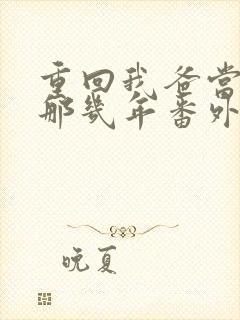 重回我爸当
那几年番外
晚夏